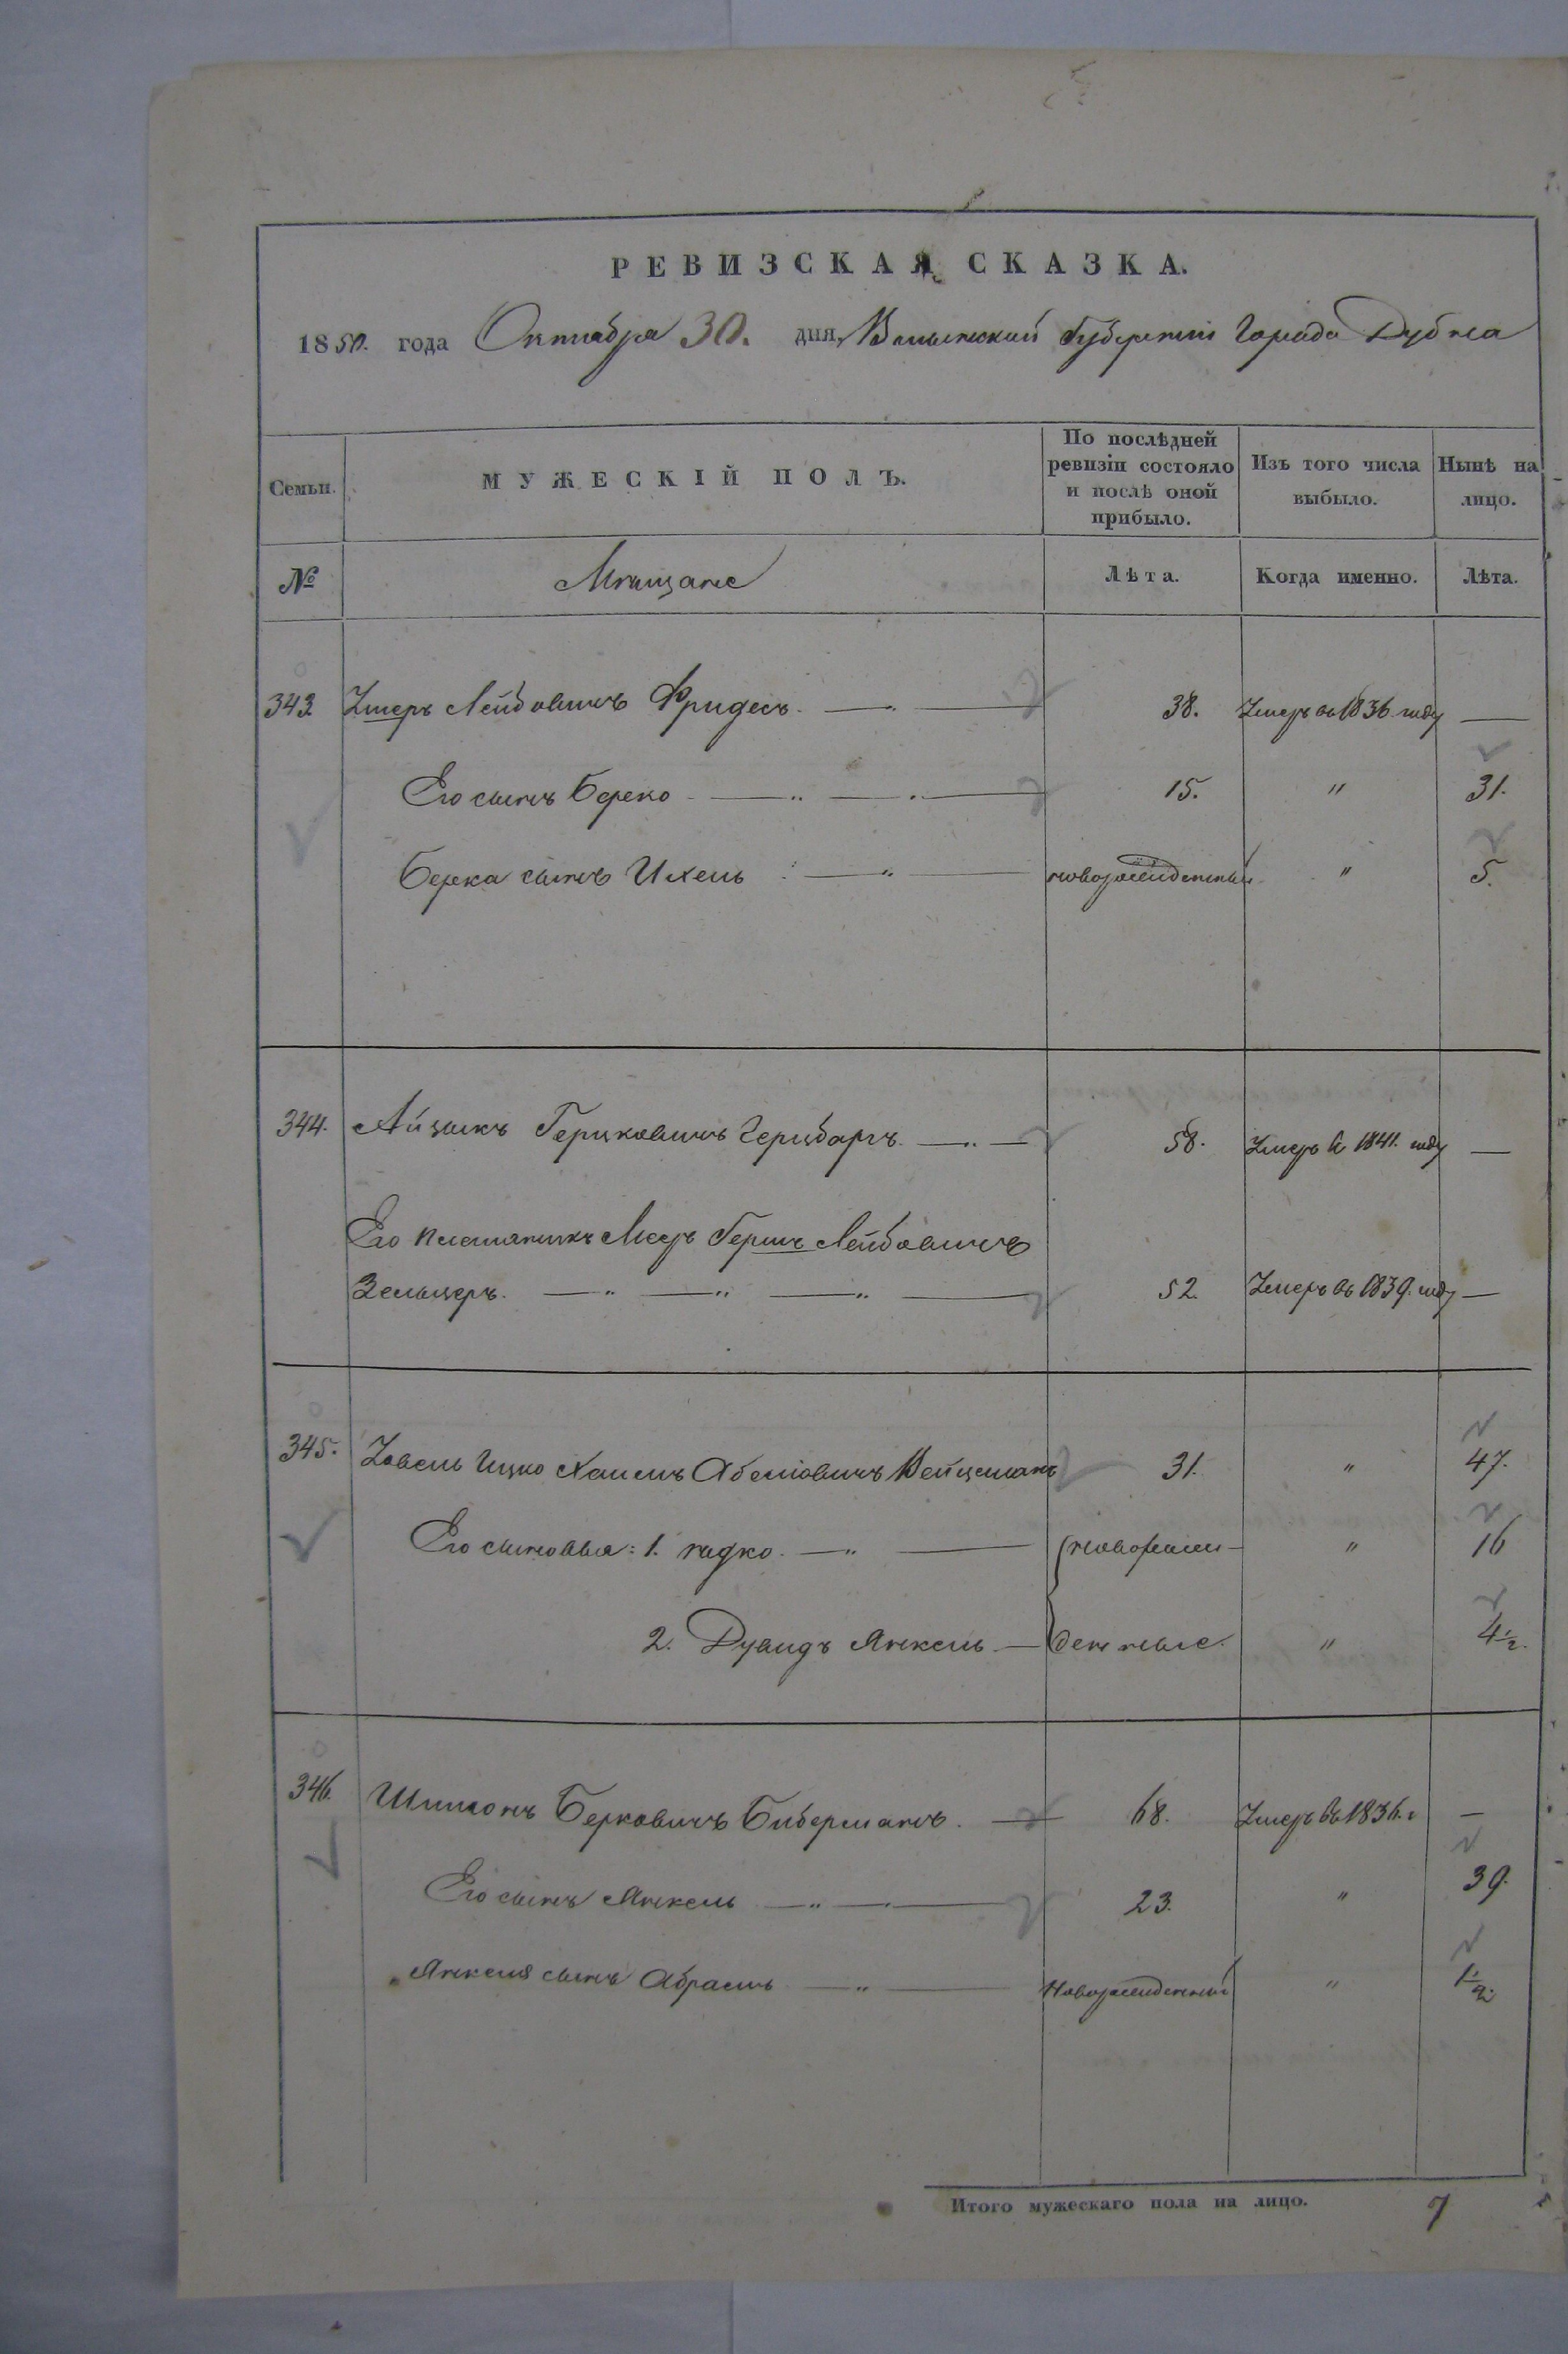 РЕВИЗСКАЯ СКАЗКА.
1850. года Октября 30. дня, Волынской Губернии Города Дубна
Семьи. МУЖЕСКІЙ ПОЛЪ. По послѣдней ревизіи состояло и послѣ оной прибыло. Изъ того числа выбыло. Нынѣ на лицо.
№ Мѣщане Лѣта. Когда именно. Лѣта.
343 Лейбовичъ Фридесъ. 38. Умеръ въ 1836 году —
Его сынъ Берко 15. " 31.
Берка сынъ Ихель новорожденный " 5.
344. Айзыкъ Герцбаргъ. 58. Умеръ в 1841. году —
Его племянникъ Мееръ Гершъ Лейбовичъ
Зельцеръ. 52. Умеръ въ 1839. году —
345. Ицко Хаимъ Вейцманъ 31. " 47.
Его сыновья: 1. новорож- " 16
2. Дувидъ Янкель — денные. " 4½.
346. Шимонъ Берковичъ Биберманъ. 68. Умеръ въ 1836. г —
Его сынъ Янкель 23. " 39.
Янкеля сынъ Абрамъ Новорожденный " 1½.
Итого мужескаго пола на лицо. 7